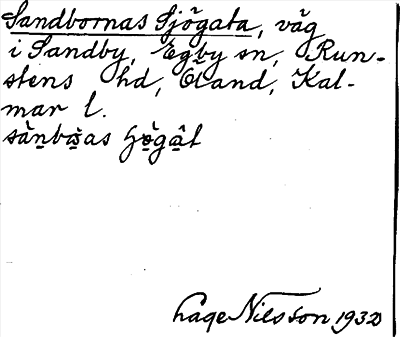 Sandbornas Sjögata, väg
i Sandby, Egby sn, Run-
stens hd, Öland, Kal-
mar l.
Lage Nilsson 1932